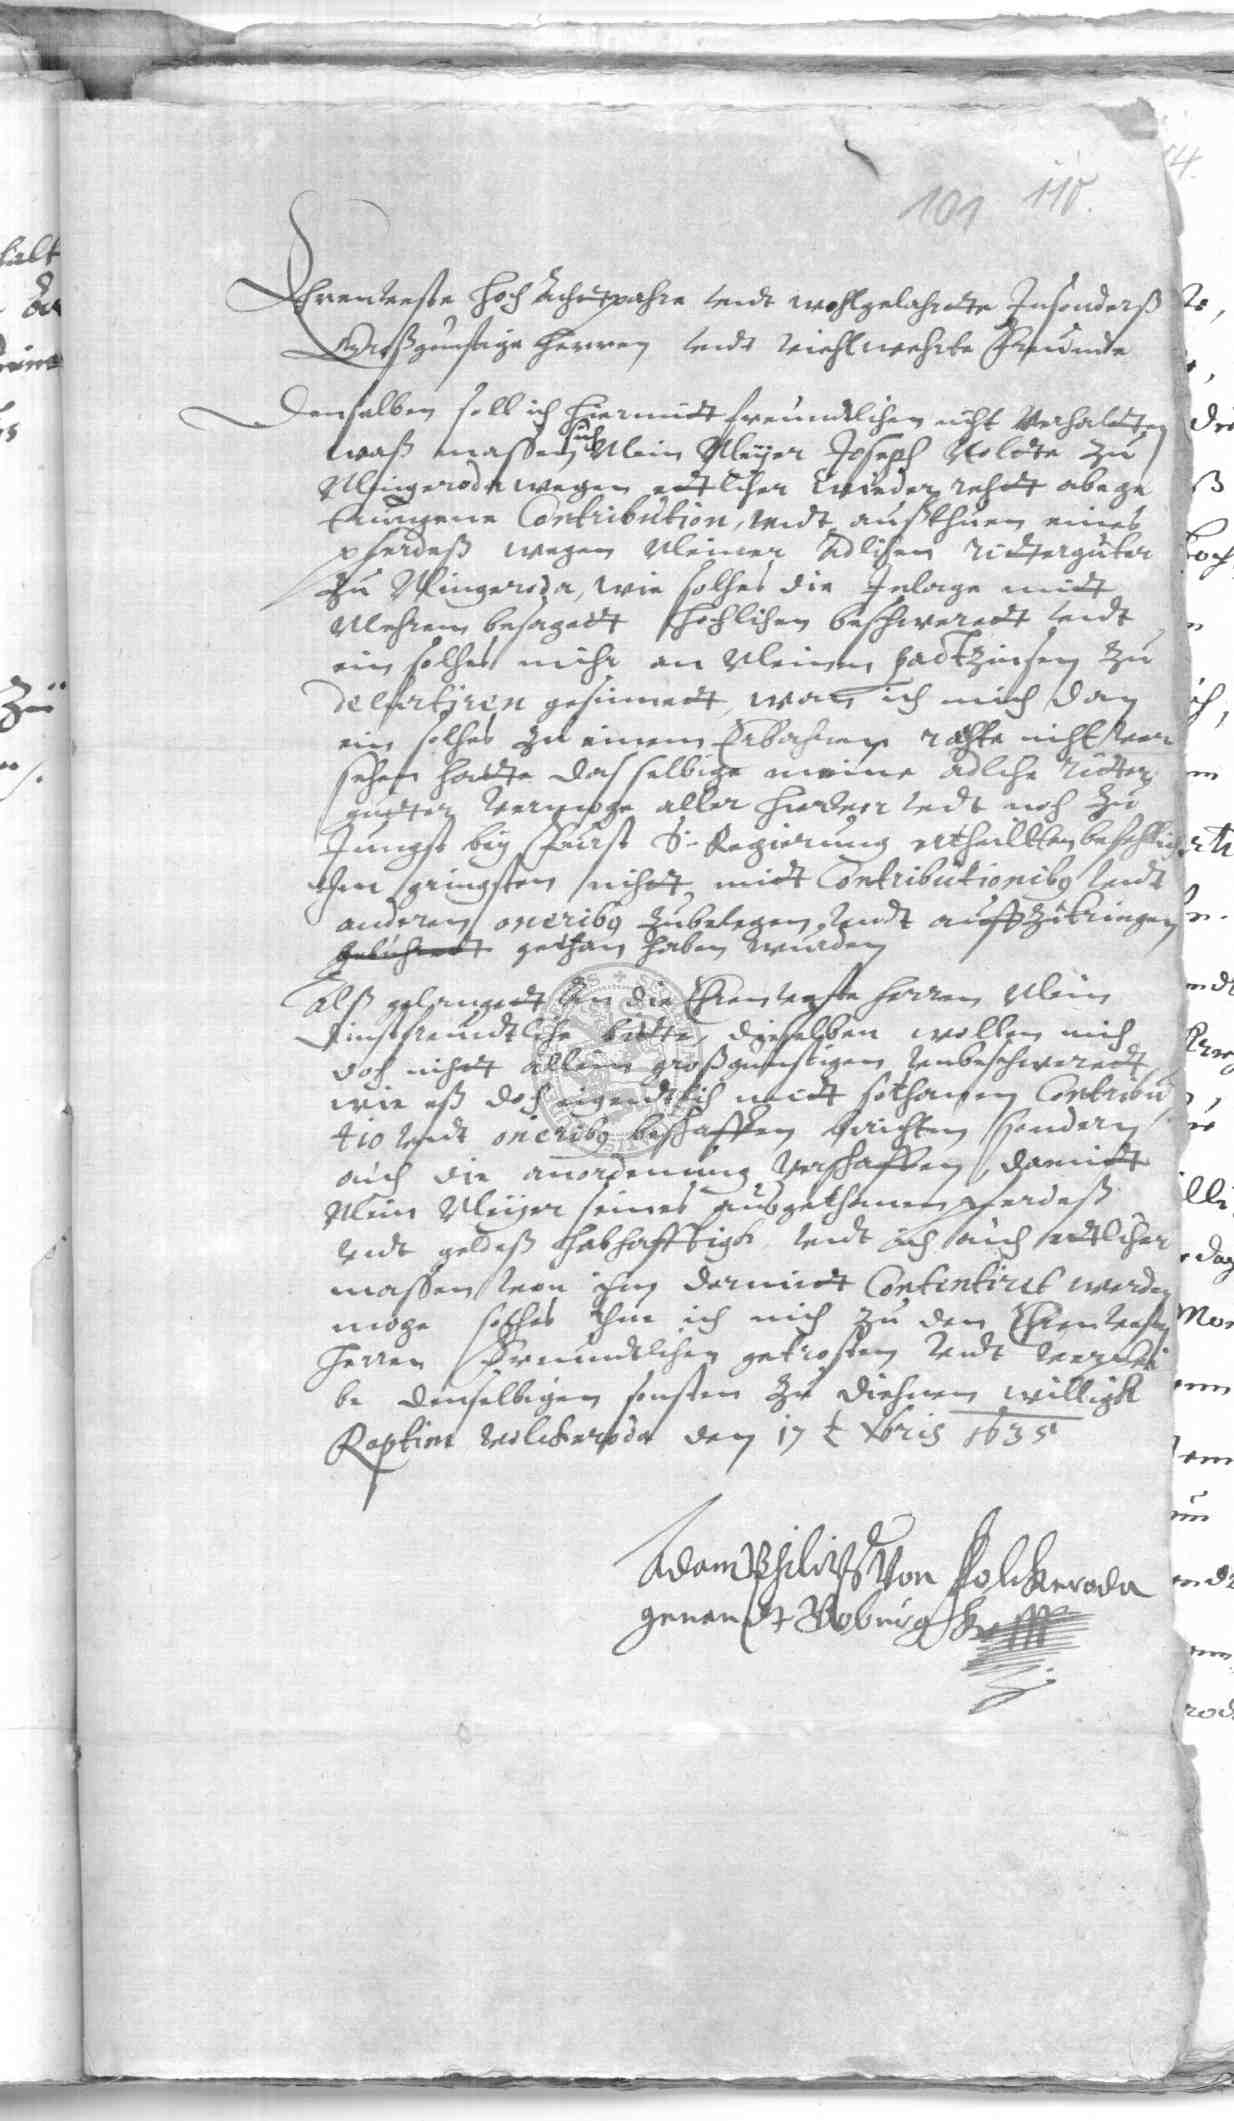 101 110.
Ehrenveste Hoch Achtpahre undt wohlgelahrtte Jnsonderß
Großgunstige Herren undt viehlwehrte Freunde
Denselben soll ich hiermitt freundtlichen nicht verhaltten
waß massen sich Mein Meijer Joseph Noldte zu
Mingeroda wegen ettlicher wieder rehdt abege
trungene Contribution, undt außthuen eines
pferdeß wegen Meiner Adlichen Rittergüter
zu Mingeroda, wie solches die Inlage mitt
Mehrem besagedt hochlichen beschweredt undt
ein solches mihr an Meinen pachtzinsen zu
decurtiren gesinnedt, wan ich mich dan
ein solhes zu einem Erbahren rahte nicht ver
sehen hadte daß selbige meine adliche Ritter
gutter vermoge aller hiervor undt noch zu
Jungst bey Fürst S. Regierung ertheillten befehlich
ihm gringsten nichdt mitt Contributionibq undt
anderen oneribq zubelegen undt auffzutringen
gebühredt gethan haben wurden
Alß gelangedt An die Ehrenveste Herren Mein
dinstfreundtliche bitte, dieselben wollen mich
doch nichdt allein großgunstigen unbeschweredt
wie eß doch eigendtlich mitt sothanen Contribu
tio undt oneribq beschaffen berichten sondern
auch die anordenung verschaffen, damitt
Mein Meijer seines ausgethanen pferdeß
undt geldeß habhafftigk undt ich auch ettlicher
massen von ihm dermitt Contentiret werden
moge solhes thue ich mich zu den Ehrenvesten
Herren Freundtlichen getrosten undt verplei
be denselbigen sonsten zu diehnen willigk
Raptim Volckeroda den 17 t Xbris 1635
Adam Philips Von Volckeroda
genendt Woburgk